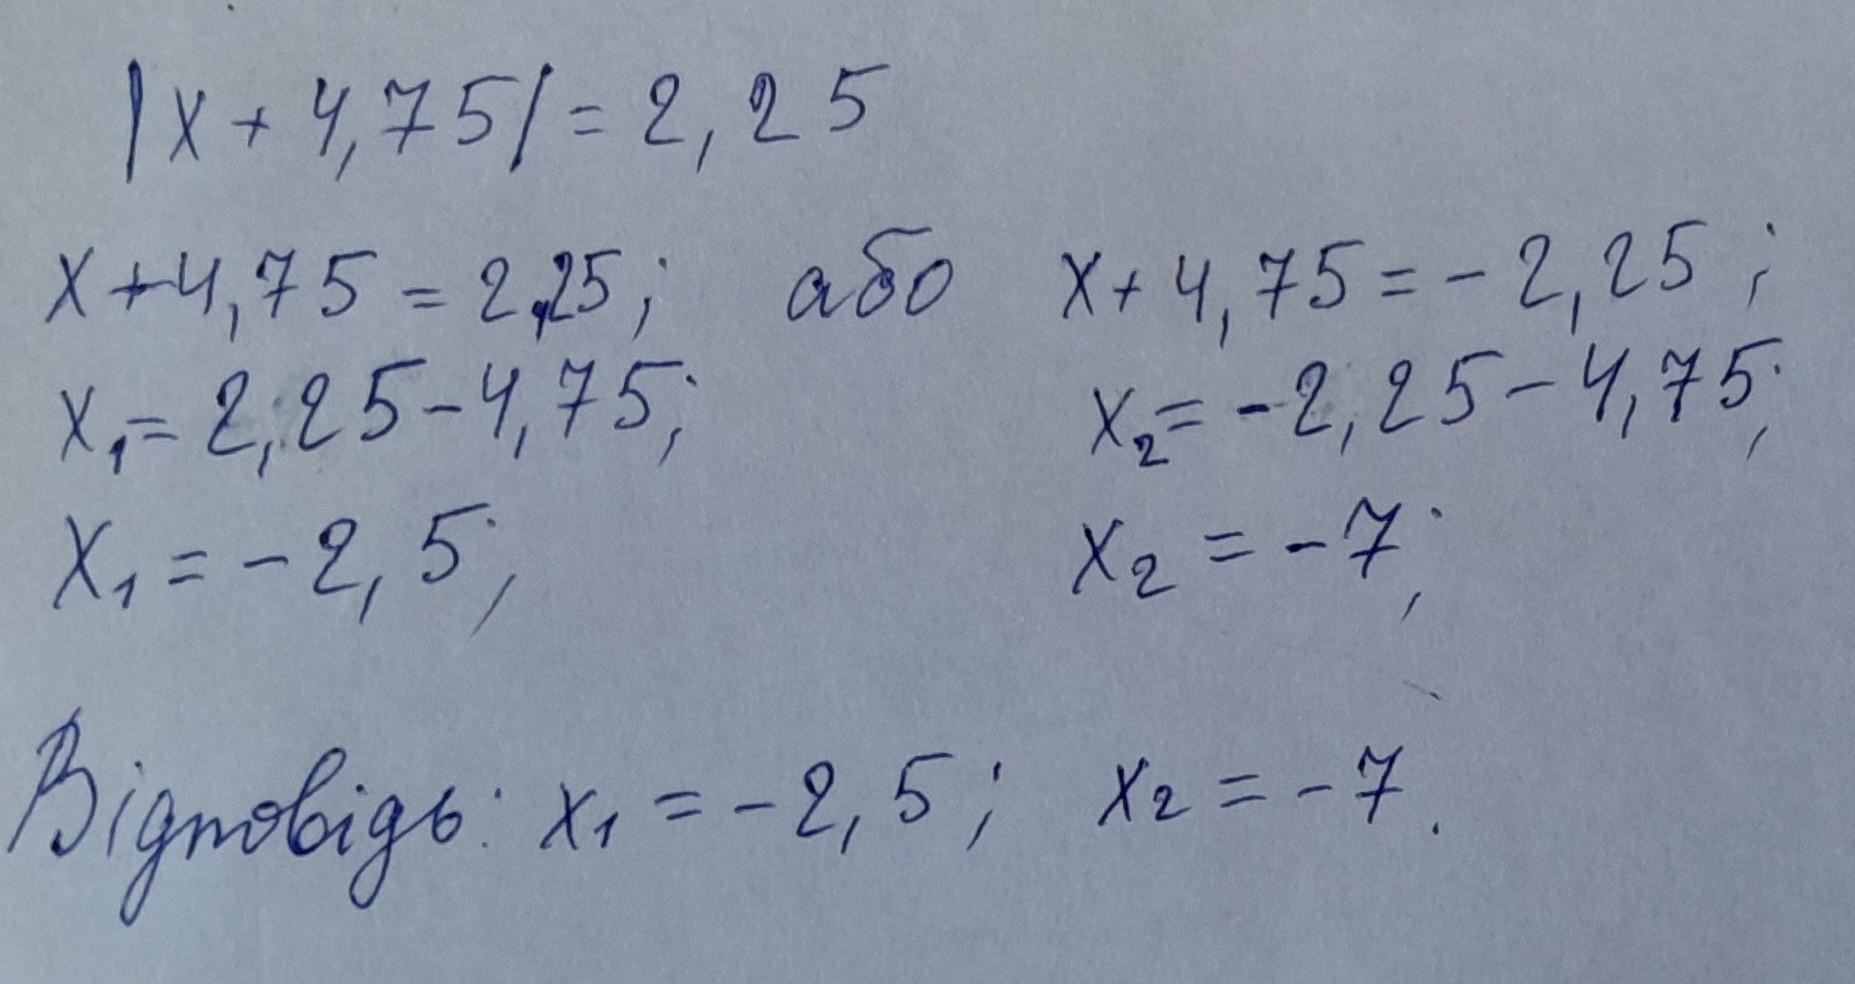 |x + 4,75| = 2,25
x + 4,75 = 2,25; або x + 4,75 = - 2,25;
x₁ = 2,25 - 4,75; x₂ = - 2,25 - 4,75;
x₁ = - 2,5; x₂ = - 7;
Відповідь: x₁ = - 2,5; x₂ = - 7.